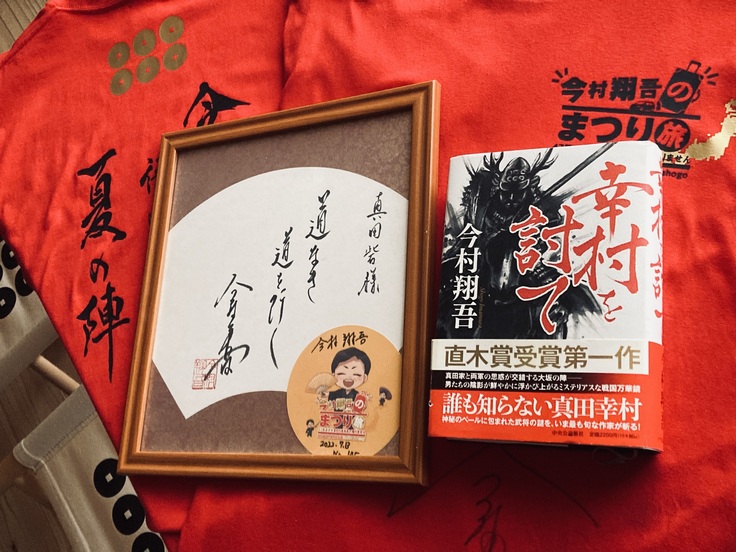 夏の陣
今村翔吾の
まつり旅
真田皆様
道なき
道を行く
今村翔吾
今村翔吾の
まつり旅
2022.9.8
幸村を
討て
今村翔吾
直木賞受賞第一作
真田家と両軍の思惑が交錯する大坂の陣――
男たちの陰影が鮮やかに浮かび上がるミステリアスな戦国万華鏡
誰も知らない真田幸村
神秘のベールに包まれた武将の謎を、いま最も旬な作家が斬る!
中央公論新社
幸村を討て